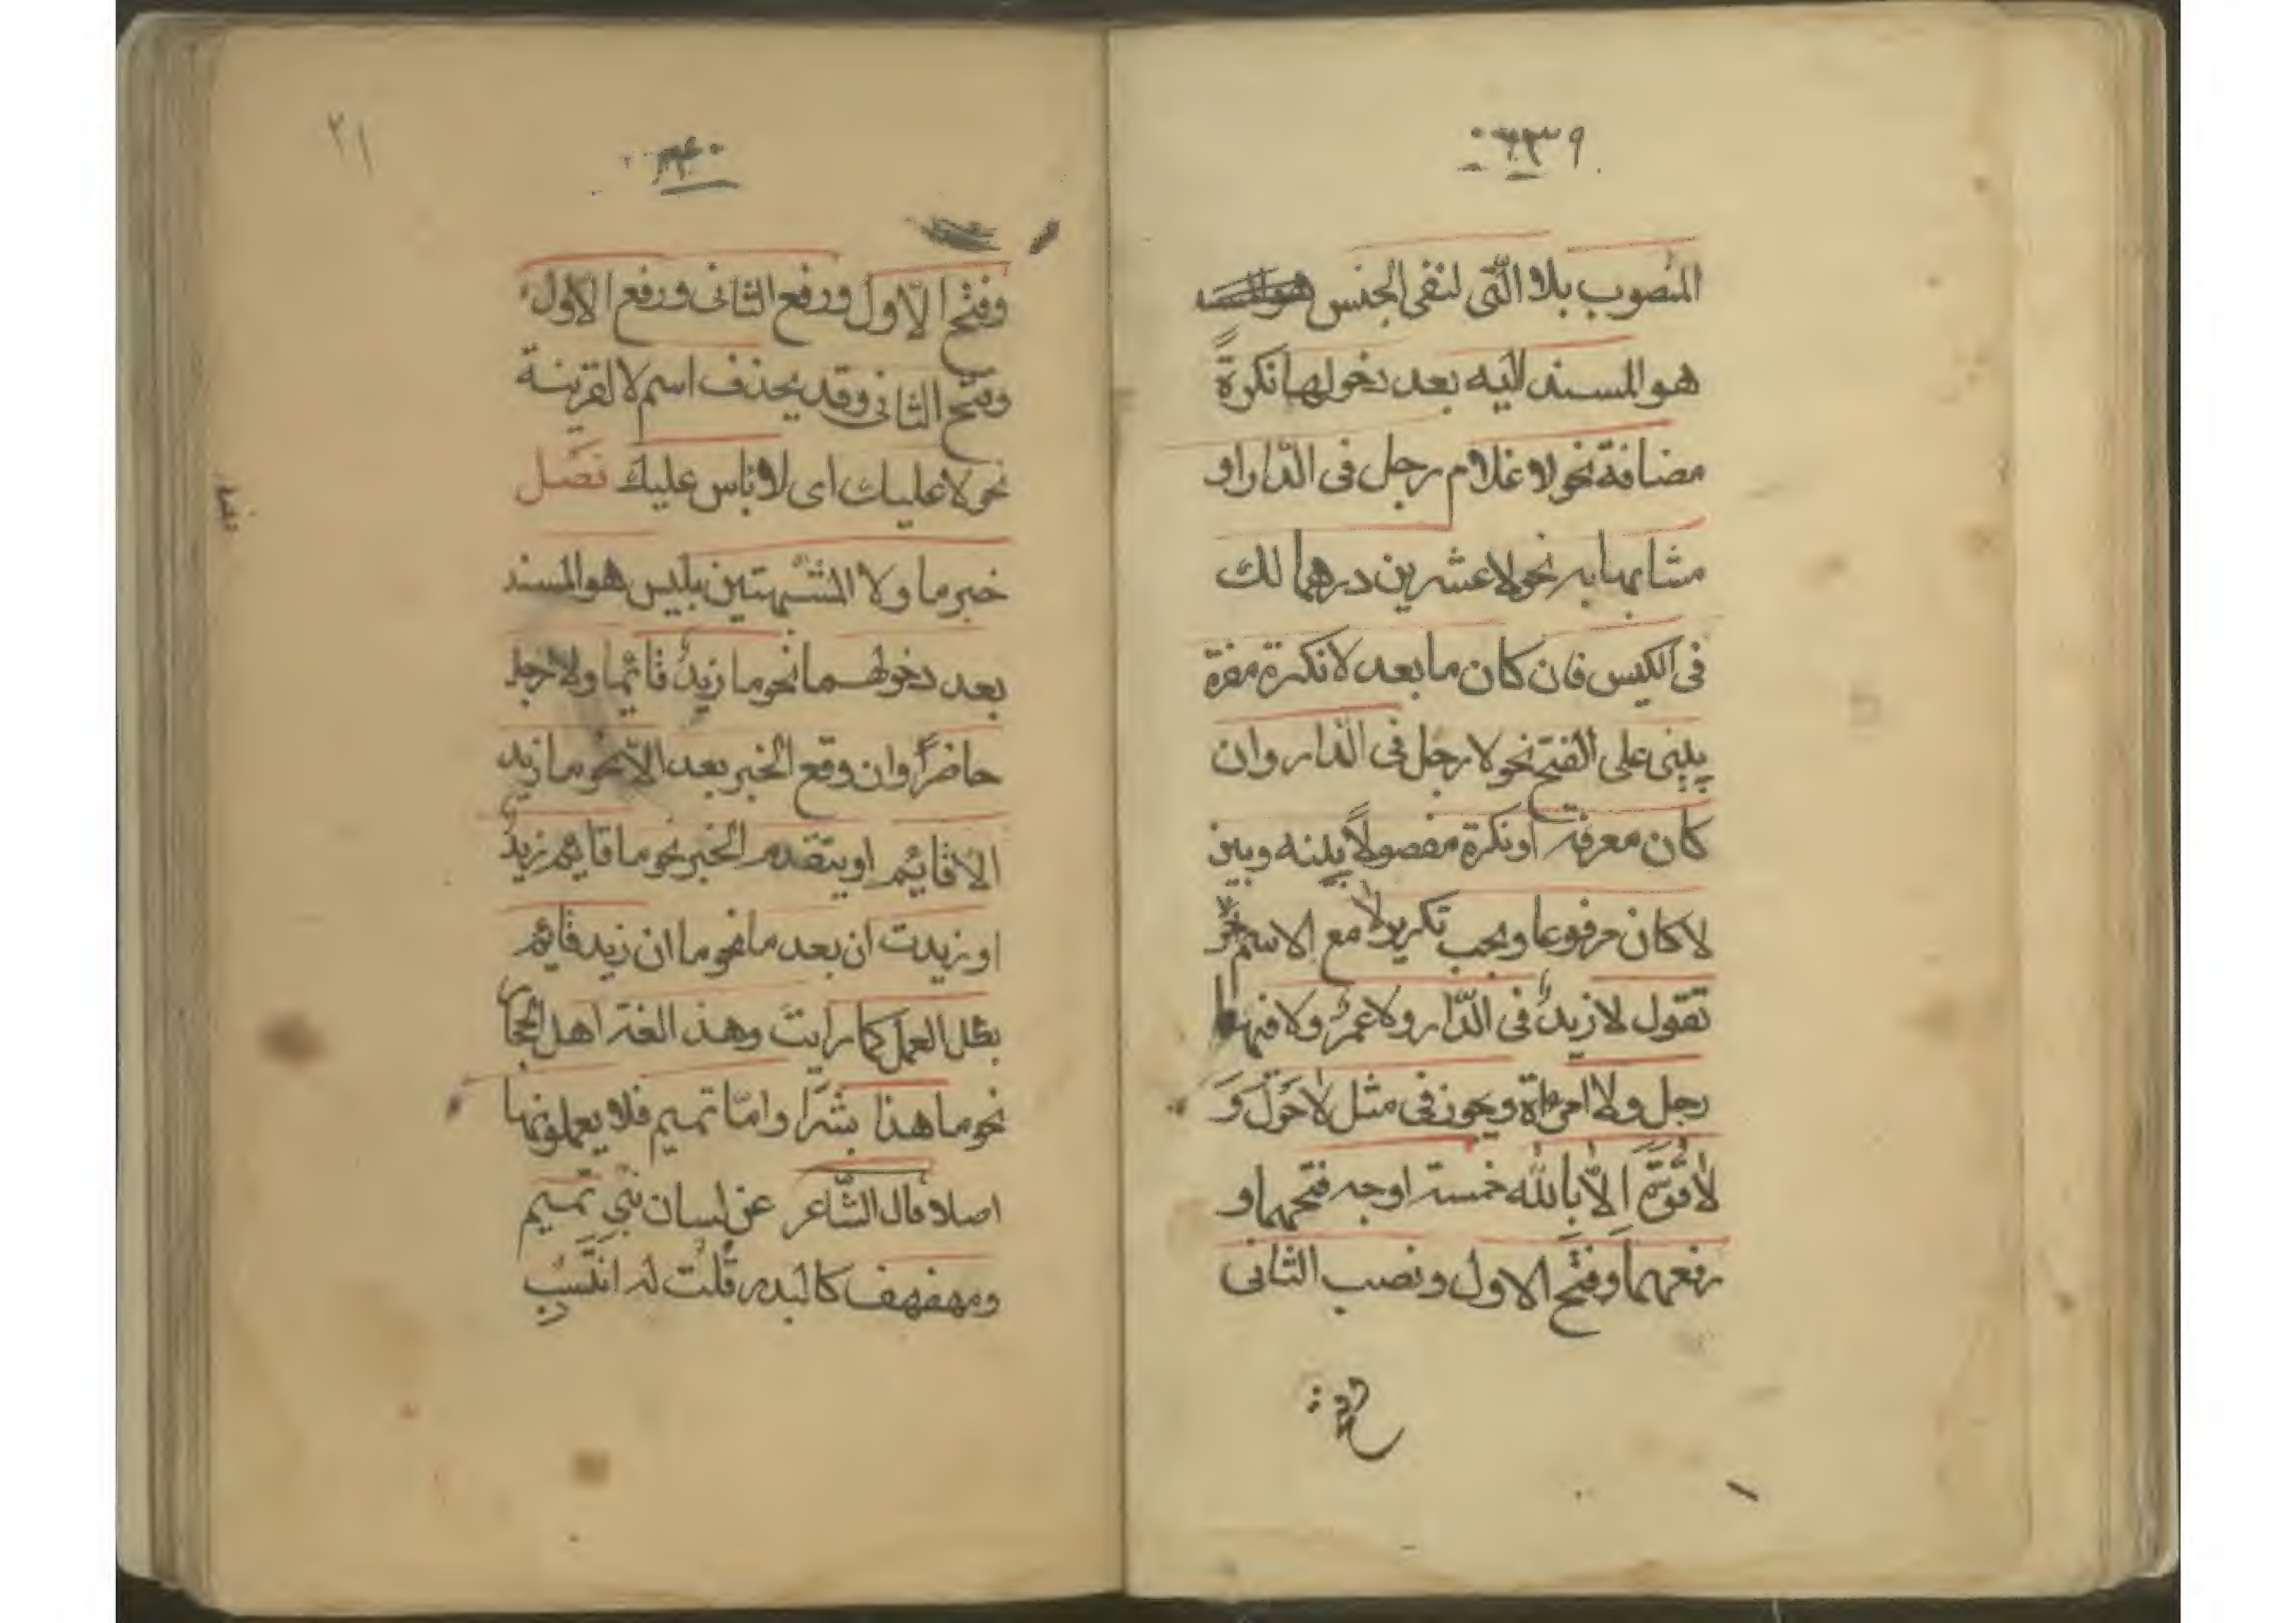 ٣٩
المنصوب بلا الّتى لنفى الجنس
هو المسند اليه بعد دخولها نكرةً
مضافة نحو لا غلام رجل فى الدّار او
مشابها به نحو لا عشرين درهما لك
فى الكيس فان كان ما بعد لا نكرة مفردة
يبنى على الفتح نحو لا رجل فى الدّار وان
كان معرفة او نكرة مفصولاً بينه وبين
لا كان مرفوعا ويجب تكرير لا مع الاسم
تقول لا زيدٌ فى الدّار ولا عمرٌو ولا فيها
رجل ولا امراة ويجوز فى مثل لا حَولَ وَ
لا قوّةَ اِلاّ بِاللّٰه خمسة اوجه فتحهما و
رفعهما وفتح الاول ونصب الثانى
وفتح
٤٠
٢١
وفتح الاول ورفع الثانى ورفع الاول
وفتح الثانى وقد يحذف اسم لا لقرينة
نحو لا عليك اى لا باس عليك فصل
خبر ما ولا المشبهتين بليس هو المسند
بعد دخولهما نحو ما زيدٌ قائما ولا رجل
حاضراً وان وقع الخبر بعد الاّ نحو ما زيد
الا قائم او يتقدم الخبر نحو ما قائم زيدٌ
او زيدت ان بعد ما نحو ما ان زيد قائم
بطل العمل كما رايتَ وهذا لغة اهل الحجاز
نحو ما هذا بشرًا وامّا تميم فلا يعملونها
اصلا قال الشّاعر عن لسان بنى تميم
ومهفهف كالبدر قُلتُ له انتَسِب